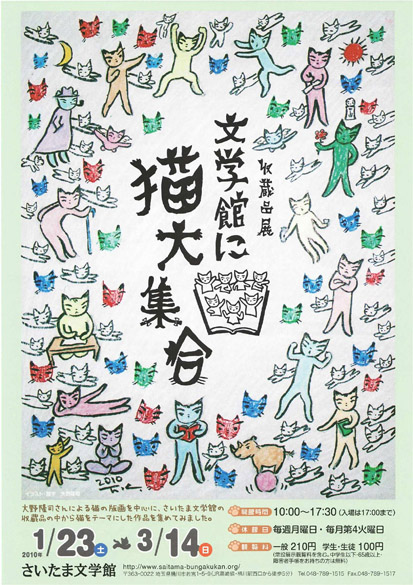 収蔵品展
文学館に
猫大集合
2010
イラスト・題字 大野隆司
大野隆司さんによる猫の版画を中心に、さいたま文学館の
収蔵品の中から猫をテーマにした作品を集めてみました。
2010年
1/23土→3/14日
さいたま文学館
開館時間 10:00〜17:30(入場は17:00まで)
休館日 毎週月曜日・毎月第4火曜日
観覧料 一般 210円 学生・生徒 100円
http://www.saitama-bungakukan.org/
Tel.048-789-1515 Fax.048-789-1517